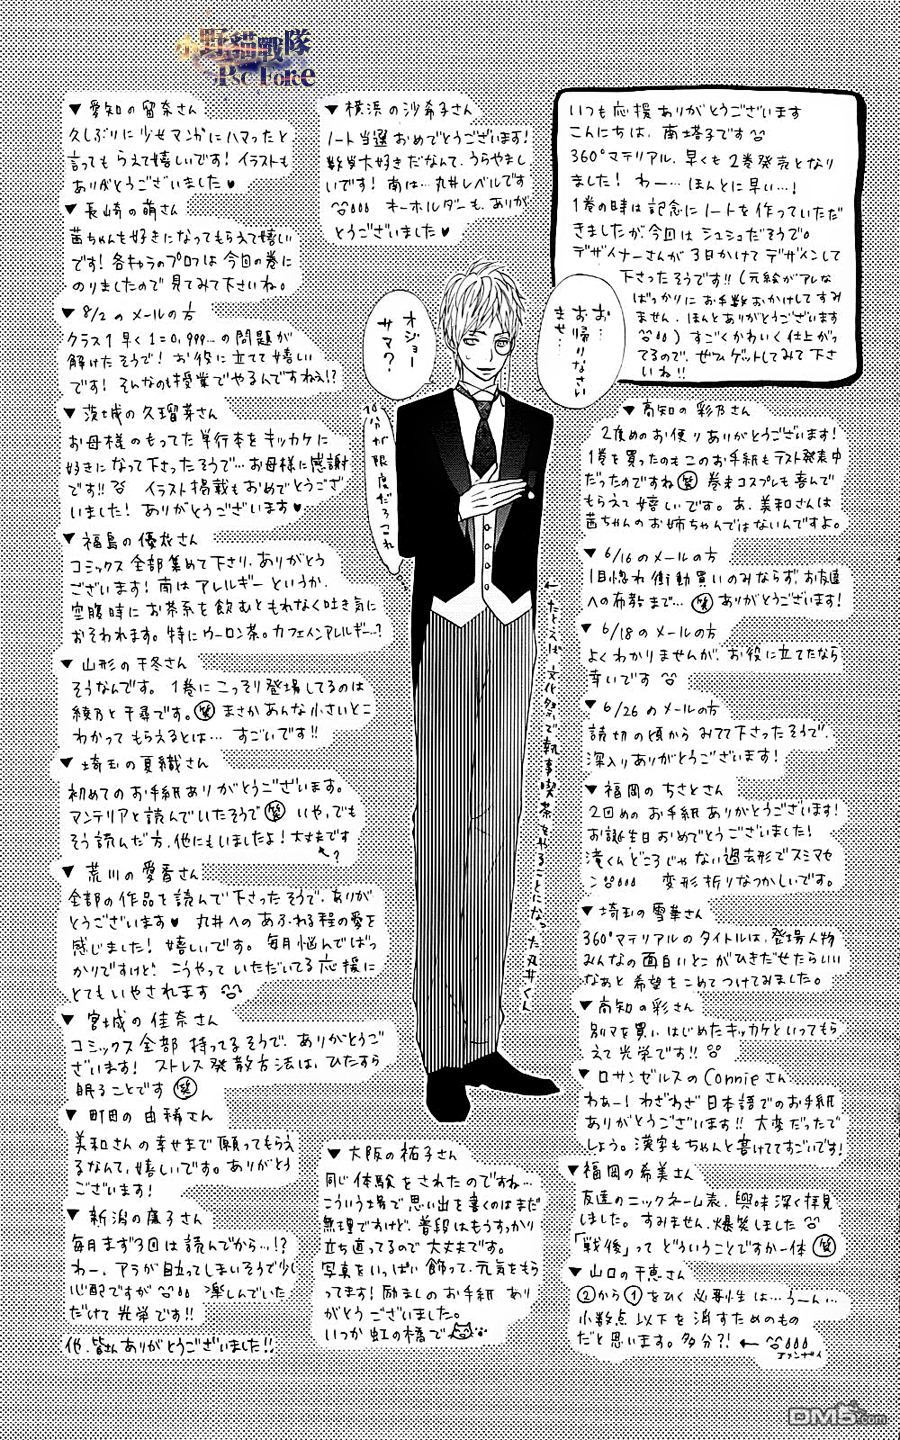 小野貓戰隊
Psc Force
いつも応援ありがとうございます
こんにちは、南塔子です
360°マテリアル、早くも2巻発売となり
ました! わー…ほんとに早い…!
1巻の時は記念にノートを作っていただ
きましたが今回はシュシュだそうで。
デザイナーさんが3日かけてデザインして
下さったそうです!!(元絵がアレな
ばっかりにお手数おかけしてすみ
ません、ほんとありがとうございます
)すごくかわいく仕上がっ
てるので、ぜひゲットしてみて下さ
いね!!
▼横浜の沙希子さん
ノート当選おめでとうございます!
数学大好きだなんて、うらやまし
いです! 南は…丸井レベルです
キーホルダーも、ありが
とうございました♥
▼愛知の留奈さん
久しぶりに少女マンガにハマったと
言ってもらえて嬉しいです! イラストも
ありがとうございました♥
▼長崎の萌さん
茜ちゃんも好きになってもらえて嬉しい
です! 各キャラのプロフは今回の巻に
のりましたので見てみて下さいね。
▼8/2のメールの方
クラス1早く1=0,999…の問題が
解けたそうで! お役に立てて嬉しい
です! そんなのも授業でやるんですねぇ!?
▼茨城の久瑠芽さん
お母様のもってた単行本をキッカケに
好きになって下さったそうで…お母様に感謝
です!! イラスト掲載もおめでとうござ
いました! ありがとうございます♥
▼福島の優衣さん
コミックス全部集めて下さり、ありがとう
ございます! 南はアレルギーというか、
空腹時にお茶系を飲むともれなく吐き気に
おそわれます。特にウーロン茶。カフェインアレルギー…?
▼山形の千冬さん
そうなんです。1巻にこっそり登場してるのは
綾乃と千尋です。(笑) まさかあんな小さいとこ
わかってもらえるとは… すごいです!!
▼埼玉の夏織さん
初めてのお手紙ありがとうございます。
マンテリアと読んでいたそうで(笑) いや、でも
そう読んだ方、他にもいましたよ! 大丈夫です
↖?
▼荒川の愛香さん
全部の作品を読んで下さったそうで、ありが
とうございます♥ 丸井へのあふれる程の愛を
感じました! 嬉しいです。毎月悩んでばっ
かりですけど! こうやっていただいてる応援に
とてもいやされます
▼宮城の佳奈さん
コミックス全部持ってるそうで、ありがとうご
ざいます! ストレス発散方法は、ひたすら
眠ることです(笑)
▼町田の由稀さん
美和さんの幸せまで願ってもらえ
るなんて、嬉しいです。ありがとう
ございます!
▼新潟の鷹子さん
毎月まず3回は読んでから…!?
わー、アラが目立ってしまいそうで少し
心配ですが 楽しんでいた
だけて光栄です!!
他、皆さんありがとうございました!!
お…
お帰りなさい
ませ…
オジョー
サマ?
10分が限度だろこれ
←たとえば文化祭で執事喫茶をやることになった丸井くん
▼大阪の祐子さん
同じ体験をされたのですね…
こういう場で思い出を書くのはまだ
無理ですけど、普段はもうすっかり
立ち直ってるので大丈夫です。
写真をいっぱい飾って、元気をもら
ってます! 励ましのお手紙ありが
とうございました。
いつか虹の橋で
▼高知の彩乃さん
2度めのお便りありがとうございます!
1巻を買ったのもこのお手紙もテスト発表中
だったのですね(笑) 巻末コスプレも喜んで
もらえて嬉しいです。あ、美和さんは
茜ちゃんのお姉ちゃんではないんですよ。
▼6/16のメールの方
1目惚れ衝動買いのみならず、お友達
への布教まで…(笑) ありがとうございます!
▼6/18のメールの方
よくわかりませんが、お役に立てたなら
幸いです
▼6/26のメールの方
読切の頃からみてて下さったそうで、
深入りありがとうございます!
▼福岡のちさとさん
2回めのお手紙ありがとうございます!
お誕生日おめでとうございました!
滝くんどころじゃない過去形でスミマセ
ン 変形折りなつかしいです。
▼埼玉の雪華さん
360°マテリアルのタイトルは、登場人物
みんなの面白いとこがひきだせたらいい
なぁと希望をこめてつけてみました。
▼高知の彩さん
別マを買いはじめたキッカケといってもら
えて光栄です!!
▼ロサンゼルスのConnieさん
わぁー! わざわざ日本語でのお手紙
ありがとうございます!! 大変だったで
しょう。漢字もちゃんと書けててすごいです!
▼福岡の希美さん
友達のニックネーム表、興味深く拝見
しました。すみません、爆笑しました
「戦後」ってどういうことですか一体(笑)
▼山口の千恵さん
②から①をひく必要性は…うーん…
小数点以下を消すためのもの
だと思います。多分?! ←
DM5.com